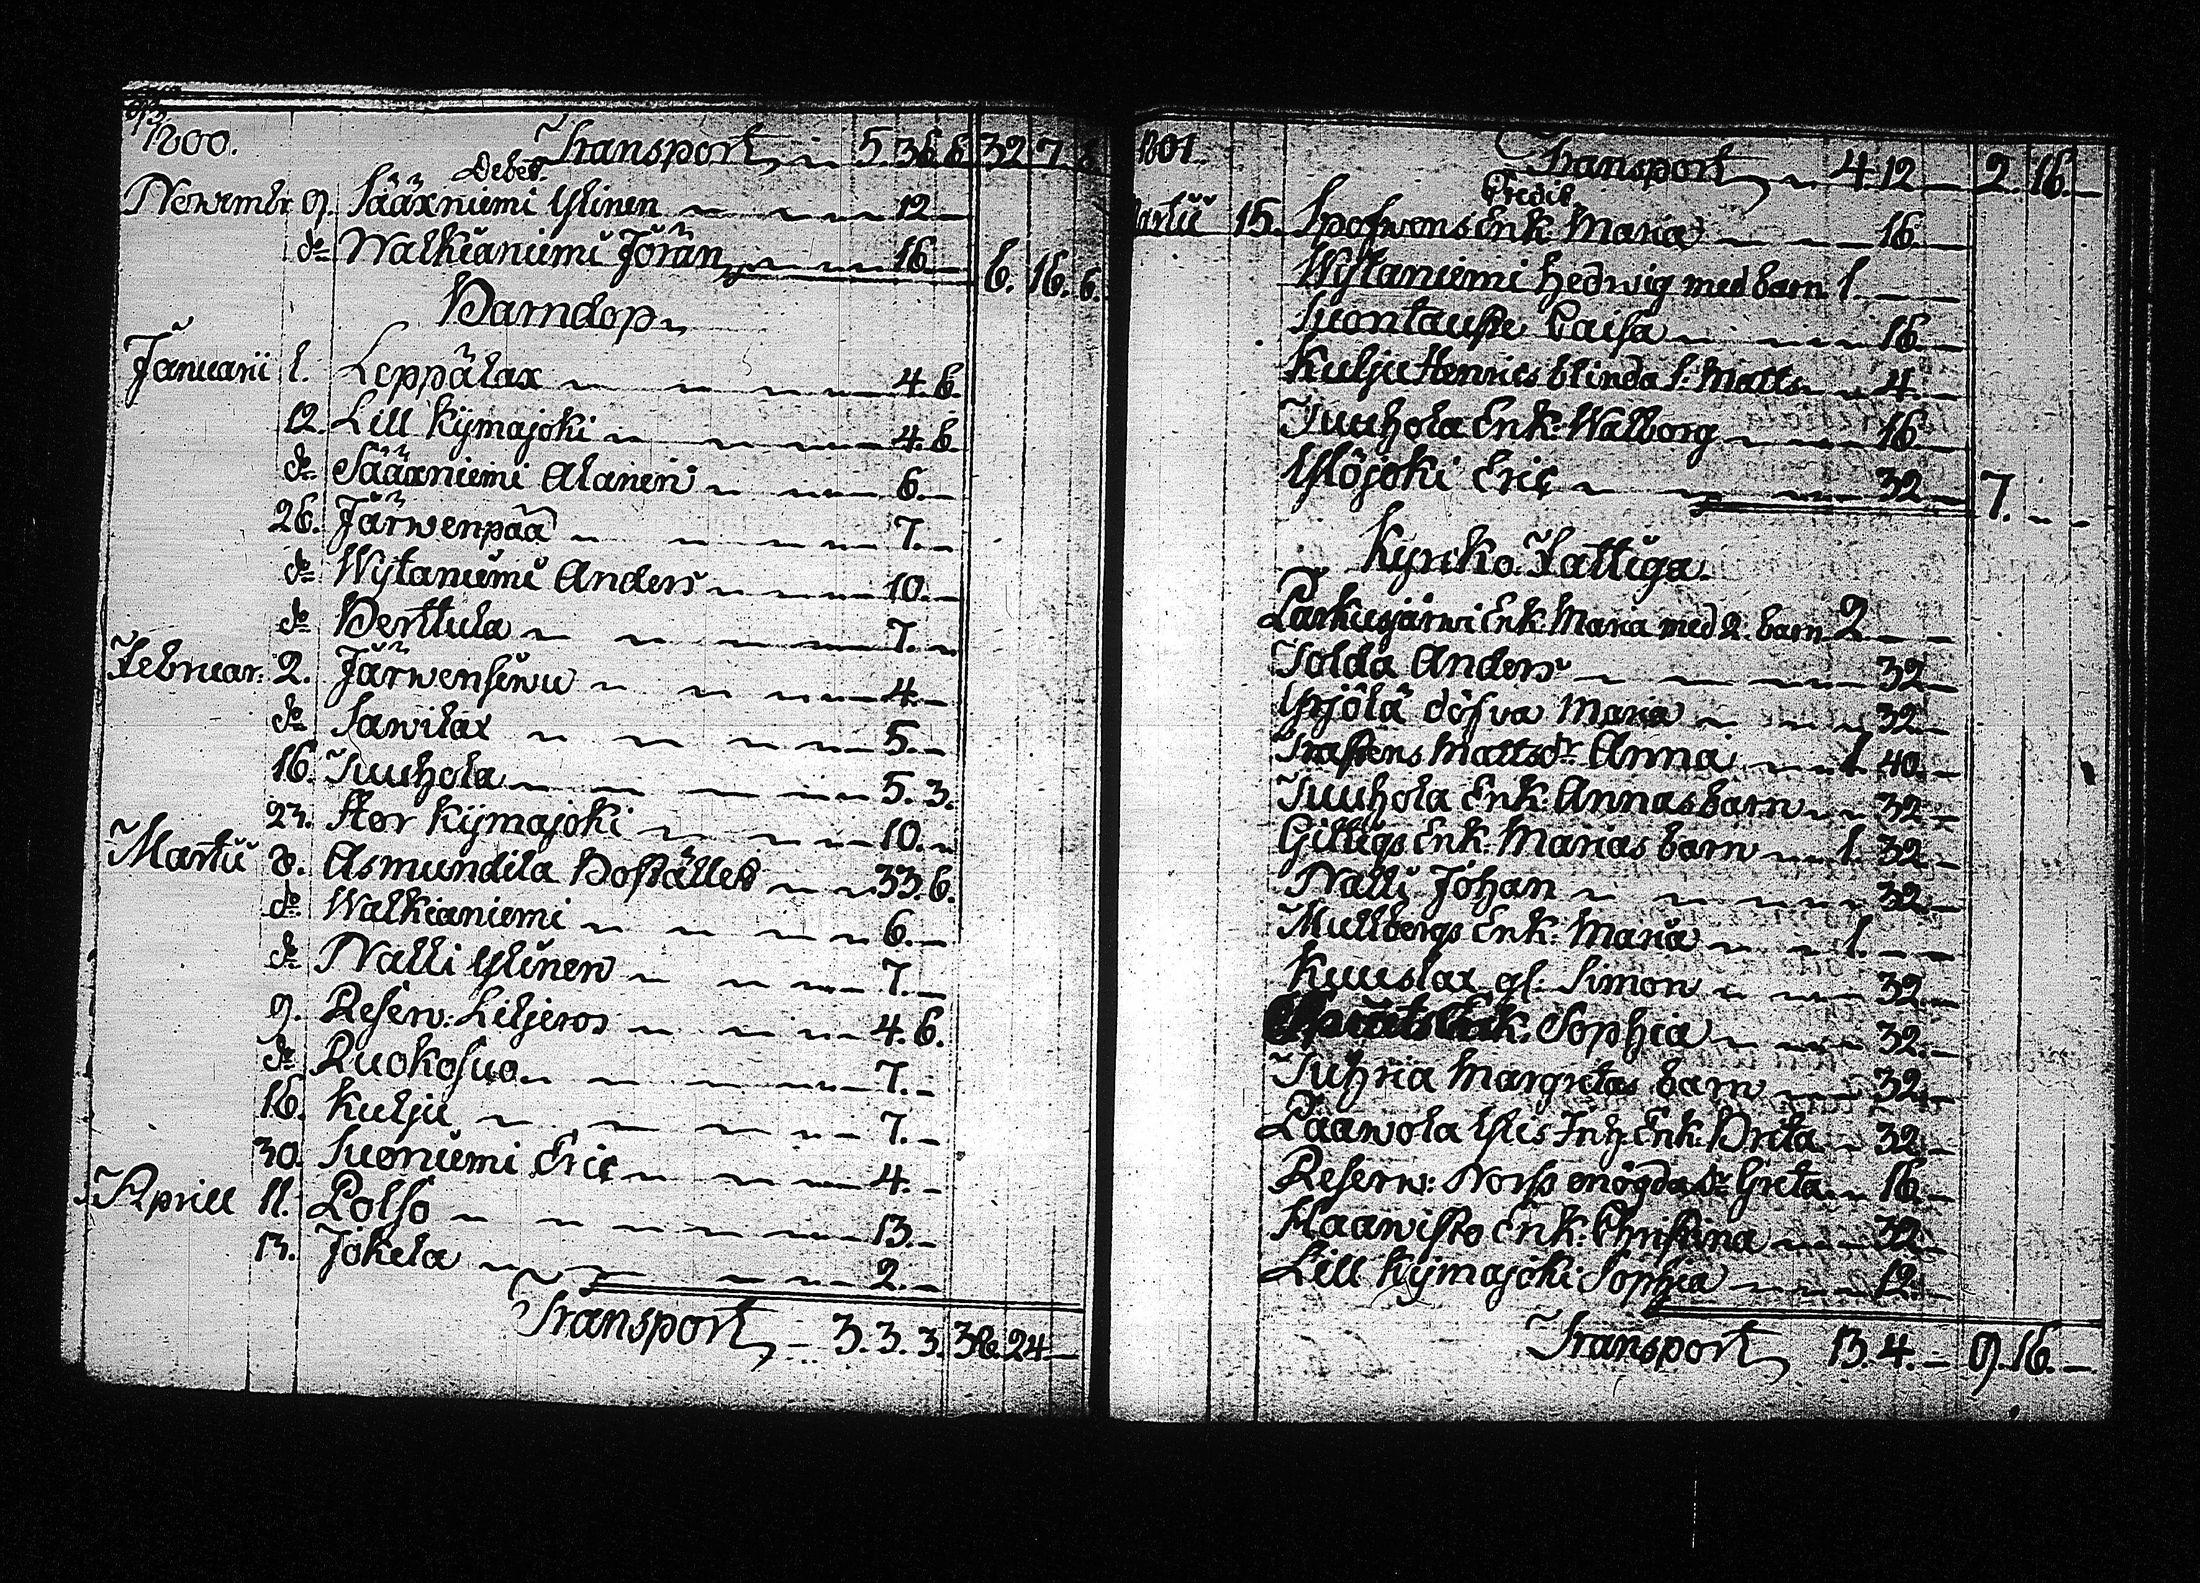 1800. Transport 5. 36. 6. 32. 7.
Debet.
Novembr 9. Sääxniemi Ylinen 12.
do Walkianiemi Jöran 16. 6. 16. 6.
Barndop
Januarii 1. Leppälax 4. 6.
12. Lill Kijmajoki 4. 6.
do Sääxniemi Alanen 6.
26. Järwenpää 7.
do Wijtaniemi Anders 10.
do Perttula 7.
Februar. 2. Järwensiwu 4.
do Sawilax 5.
16. Juuhola 5. 3.
23. Stor Kijmajoki 10.
Martii 8. Asmundila Bostället 33. 6.
do Walkianiemi 6.
do Nalli Ylinen 7.
9. Reserv: Liljeros 4. 6.
do Ruokosuo 7.
16. Kulju 7.
30. Suoniemi Eric 4.
Aprill 11. Polso 13.
13. Jokela 2.
Transport 3. 3. 3. 38. 24
1801. Transport 4. 12 2. 16.
Credit.
Martii 15. Enk. Maria 16
Wijtaniemi Hedwig med barn 1.
Suontausta Caisa 16.
Kulju Henrics blinda S. Matts 4
Juuhola Enk. Walborg 16
Ylöjoki Eric 32 7.
Kyrko Fattiga.
Parkujärwi Enk. Maria med 2. barn 2
Tolda Anders 32
Ypjölä döfva Maria 32
Mattsdr Anna 1. 40.
Juuhola Enk. Annas barn 32
Gilligs Enk. Marias barn 1. 32.
Nalli Johan 32
Mullbergs Enk. Maria 1.
Kuuslax gl. Simon 32
Enk. Sophia 32.
Juhria Margretas barn 32.
Paawola Ylis Inh. Enk. Brita 32
Reserv: Norsp Greta 16.
Haawisto Enk. Christina 32
Lill Kijmajoki Sophia 12.
Transport 13. 4. 9. 16.